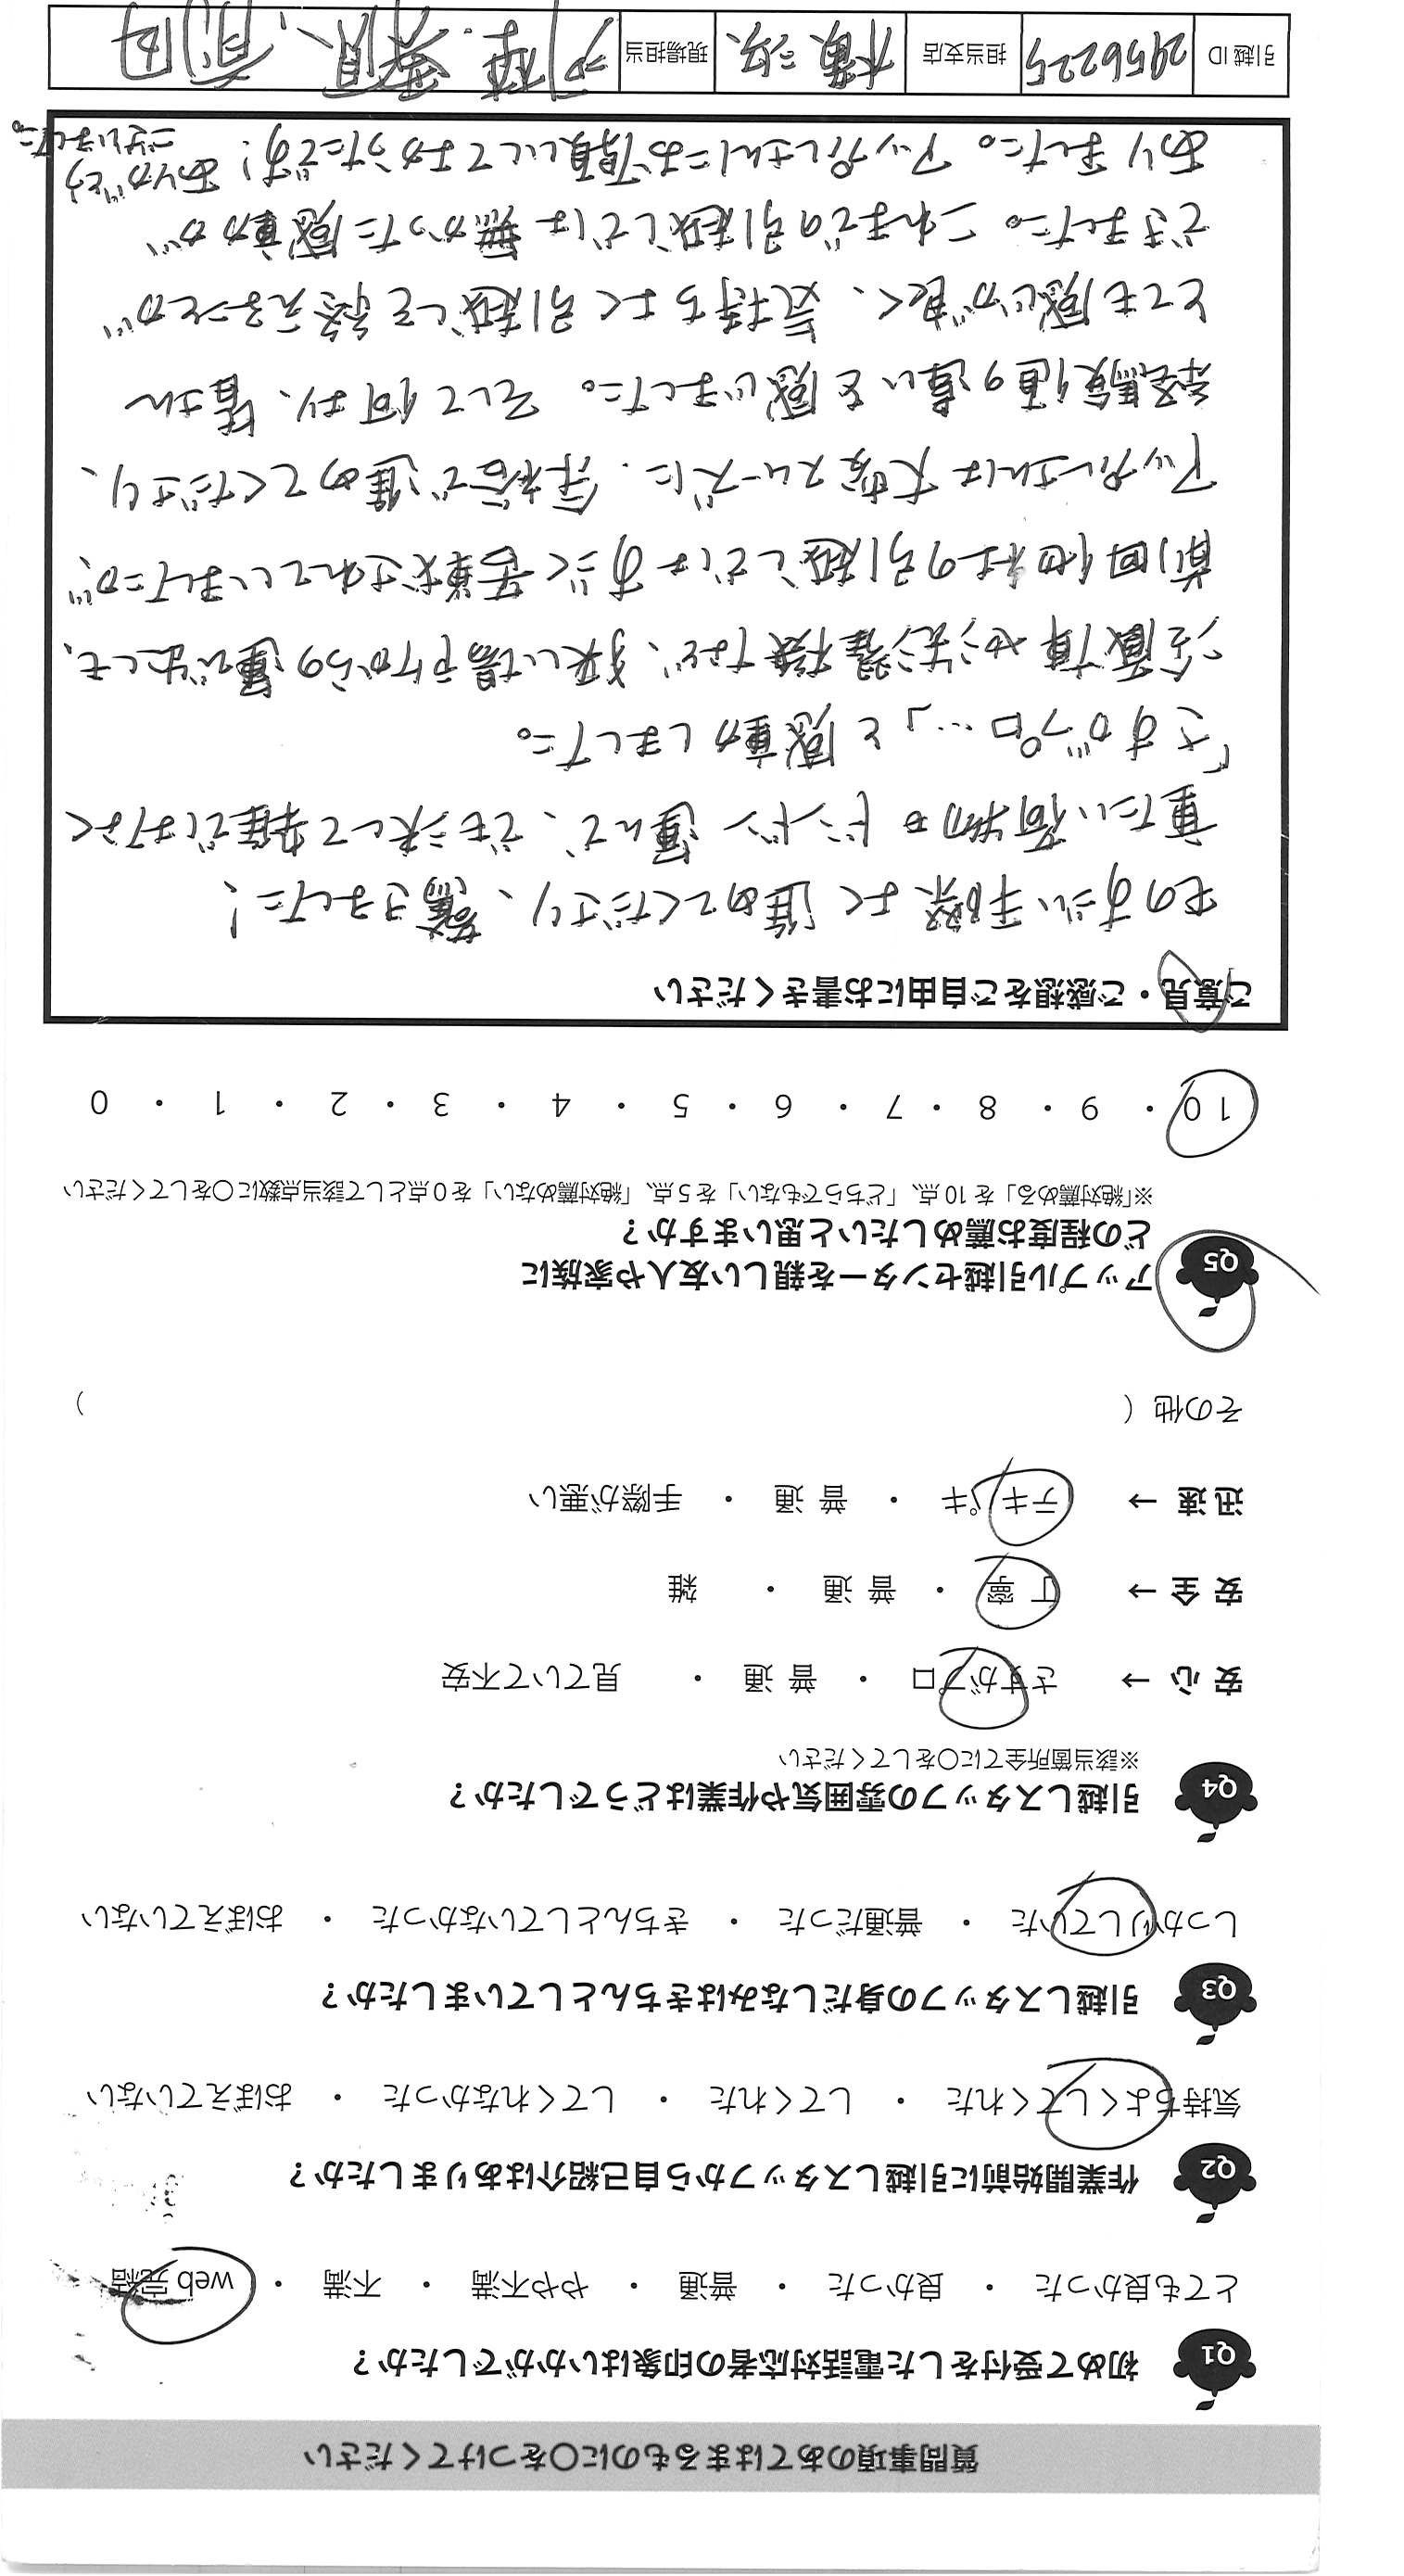 質問事項のあてはまるものに○をつけてください
Q1 初めて受付をした電話対応者の印象はいかがでしたか？
とても良かった ・ 良かった ・ 普通 ・ やや不満 ・ 不満 ・ web 完結
Q2 作業開始前に引越しスタッフから自己紹介はありましたか？
気持ちよくしてくれた ・ してくれた ・ してくれなかった ・ おぼえていない
Q3 引越しスタッフの身だしなみはきちんとしていましたか？
しっかりしていた ・ 普通だった ・ きちんとしていなかった ・ おぼえていない
Q4 引越しスタッフの雰囲気や作業はどうでしたか？
※該当箇所全てに○をしてください
安心 → さすがプロ ・ 普通 ・ 見ていて不安
安全 → 丁寧 ・ 普通 ・ 雑
迅速 → テキパキ ・ 普通 ・ 手際が悪い
その他（ ）
Q5 アップル引越センターを親しい友人や家族に
どの程度お薦めしたいと思いますか？
※「絶対薦める」を 10 点、「どちらでもない」を 5 点、「絶対薦めない」を 0 点として該当点数に○をしてください
10 ・ 9 ・ 8 ・ 7 ・ 6 ・ 5 ・ 4 ・ 3 ・ 2 ・ 1 ・ 0
ご意見・ご感想をご自由にお書きください
ものすごい手際よく進めてくださり、驚きました！
重たい荷物もドンドン運んで、でも決して雑ではなく
「さすがプロ…」と感動しました。
冷蔵庫や洗濯機など、狭い場所からの運び出しも、
前回他社の引越しではすごく苦戦されていましたが、
アップルさんは大変スムーズに、余裕で進めてくださり、
経験値の違いを感じました。そして何より、皆さん
とても感じが良く、気持ちよく引越しを終えることが
できました。これまでの引越しでは無かった感動が
ありました。アップルさんにお願いしてよかったです！ ありがとう
ございました。
引越 ID 2956225 担当支店 横浜 現場担当